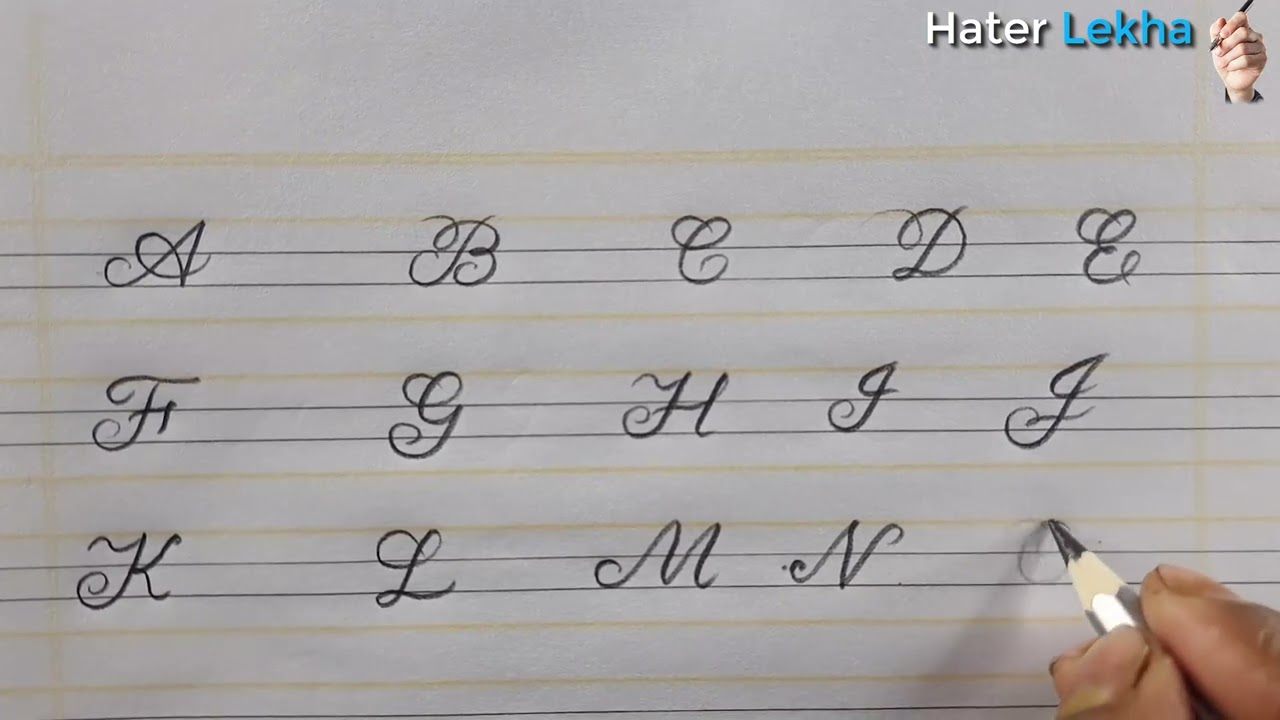 Hater Lekha
A B C D E
F G H I J
K L M N